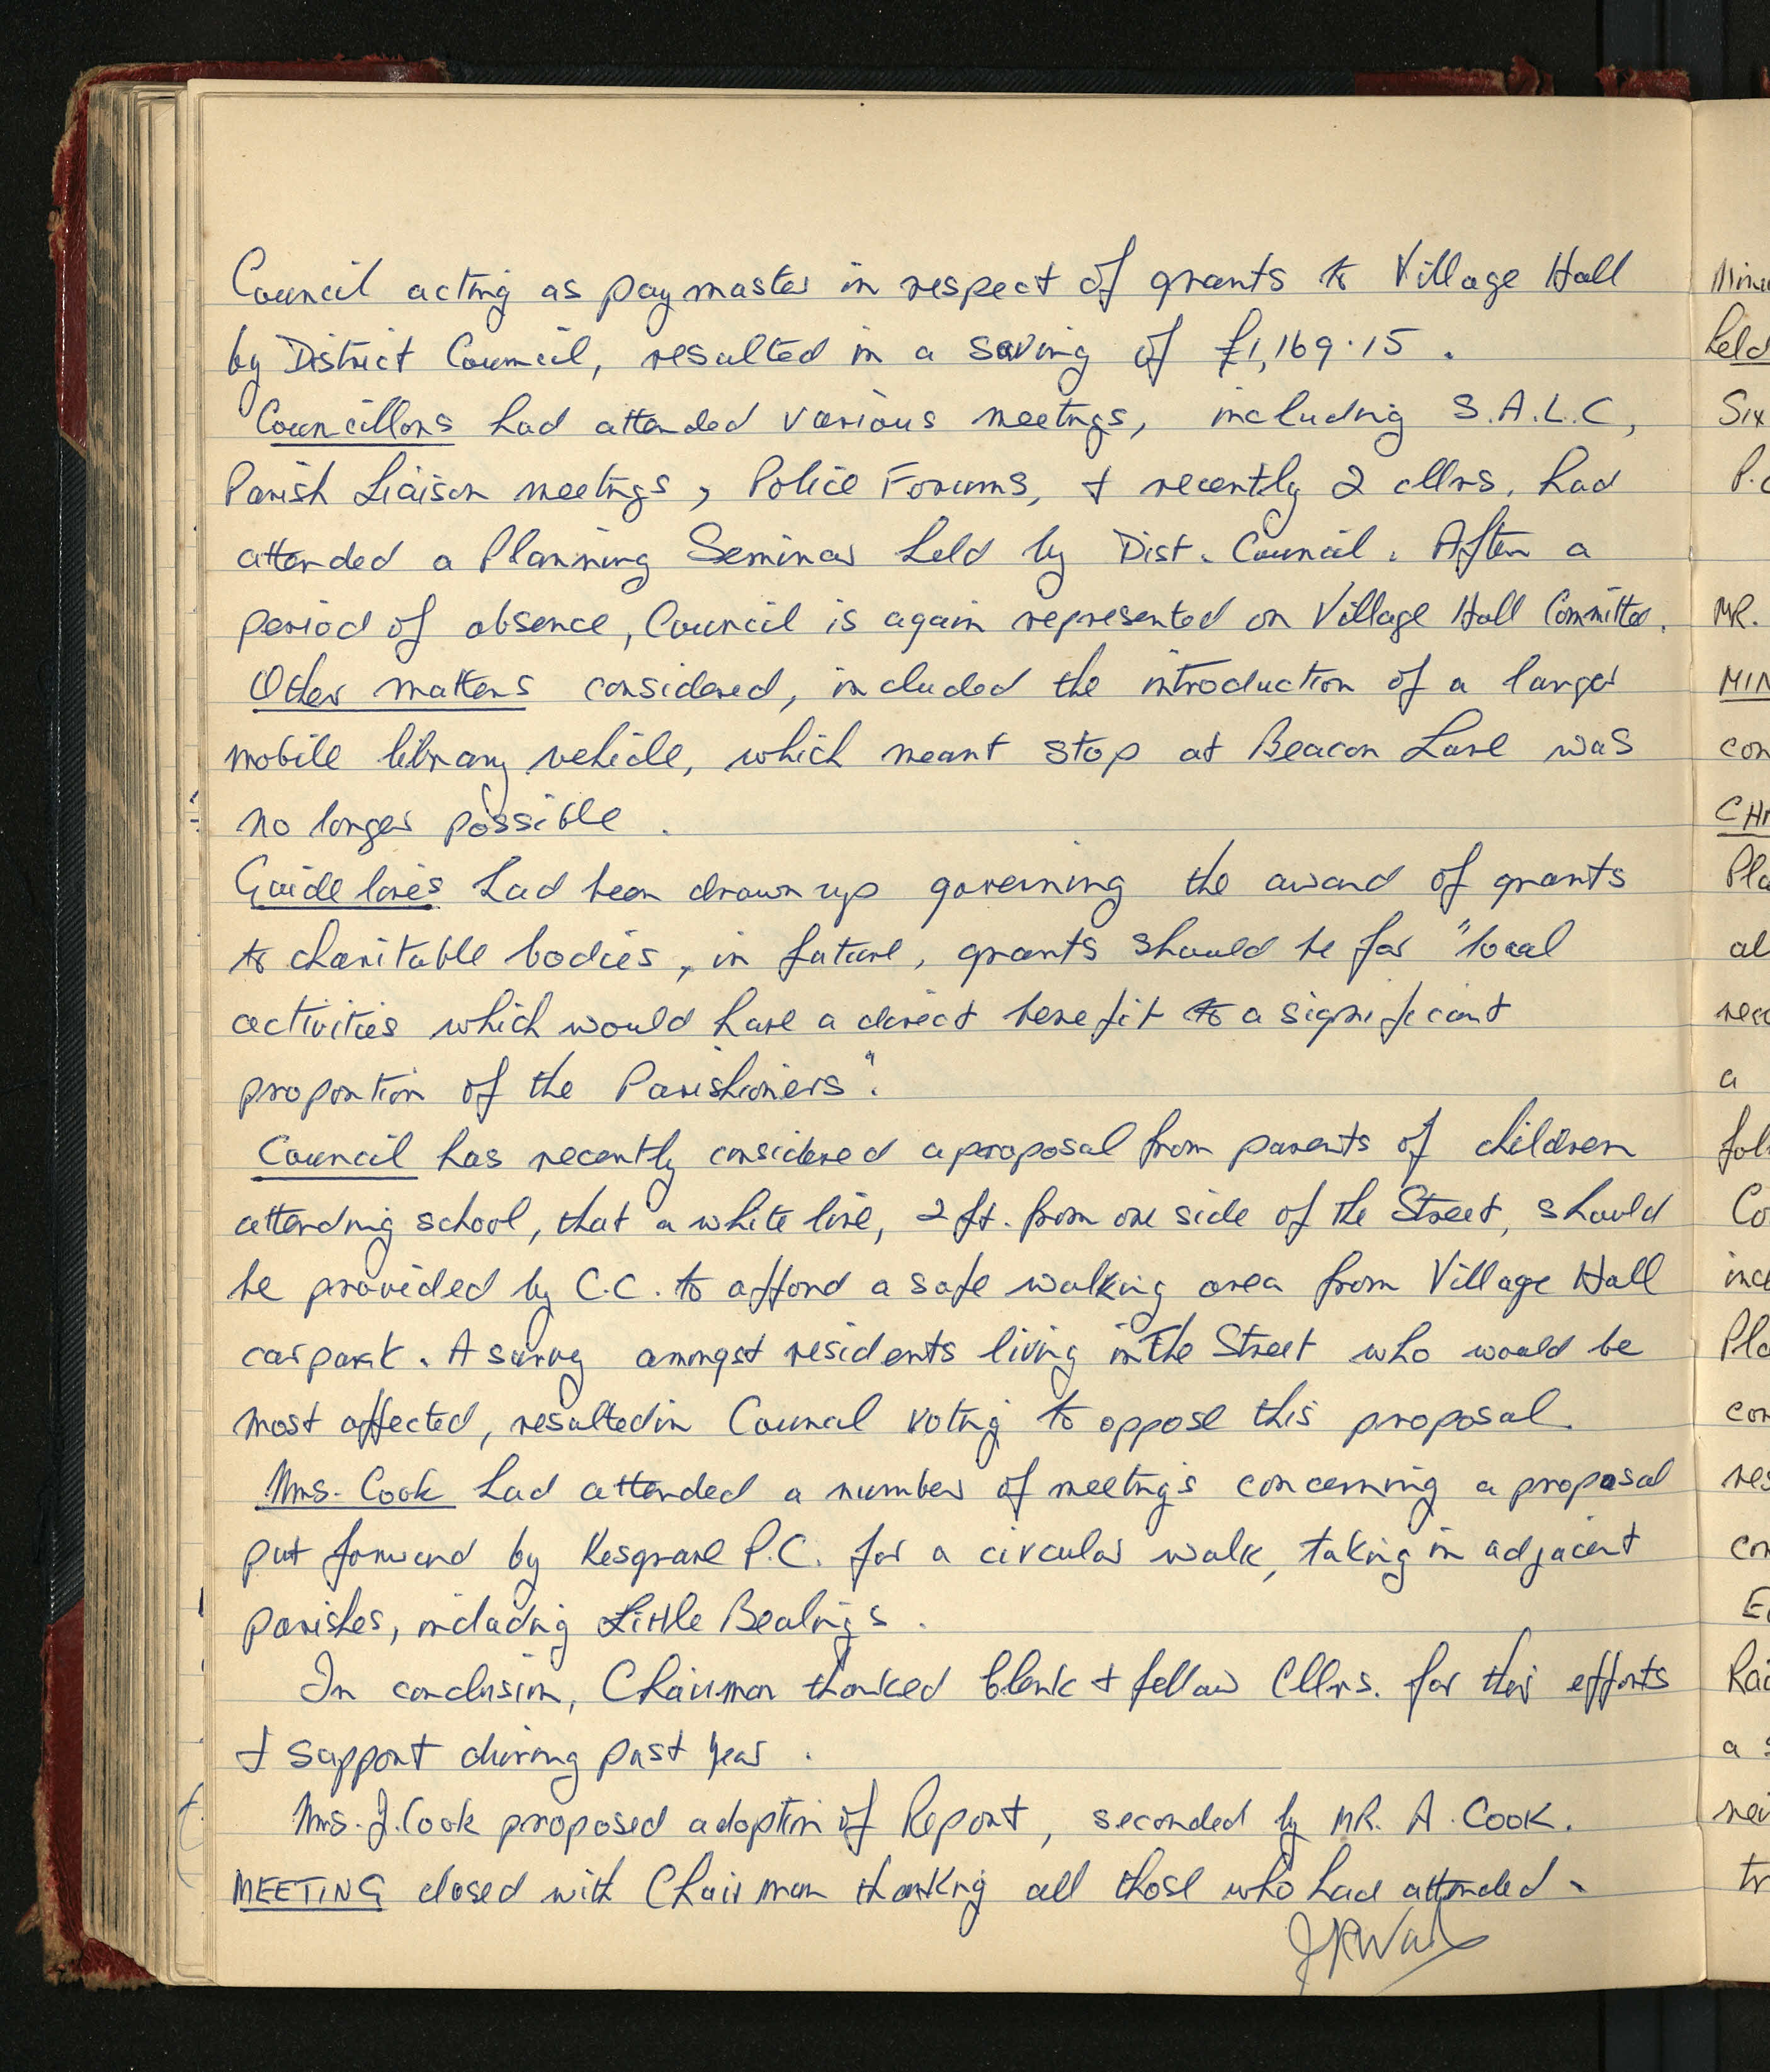 Council acting as paymaster in respect of grants to Village Hall
by District Council, resulted in a saving of £1,169·15.
Councillors had attended various meetings, including S.A.L.C,
Parish Liaison meetings, Police Forums, & recently 2 cllrs. had
attended a Planning Seminar held by Dist. Council. After a
period of absence, Council is again represented on Village Hall Committee.
Other matters considered, included the introduction of a larger
mobile library vehicle, which meant stop at Beacon Lane was
no longer possible.
Guide lines had been drawn up governing the award of grants
to charitable bodies, in future, grants should be for "local
activities which would have a direct benefit to a significant
proportion of the Parishioners".
Council has recently considered a proposal from parents of children
attending school, that a white line, 2 ft. from one side of the Street, should
be provided by C.C. to afford a safe walking area from Village Hall
car park. A survey amongst residents living in the Street who would be
most affected, resulted in Council voting to oppose this proposal.
Mrs. Cook had attended a number of meetings concerning a proposal
put forward by Kesgrave P.C. for a circular walk, taking in adjacent
parishes, including Little Bealings.
In conclusion, Chairman thanked Clerk & fellow Cllrs. for their efforts
& support during past year.
Mrs. J. Cook proposed adoption of Report, seconded by MR. A. COOK.
MEETING closed with Chairman thanking all those who had attended.
held
Six
MR.
a